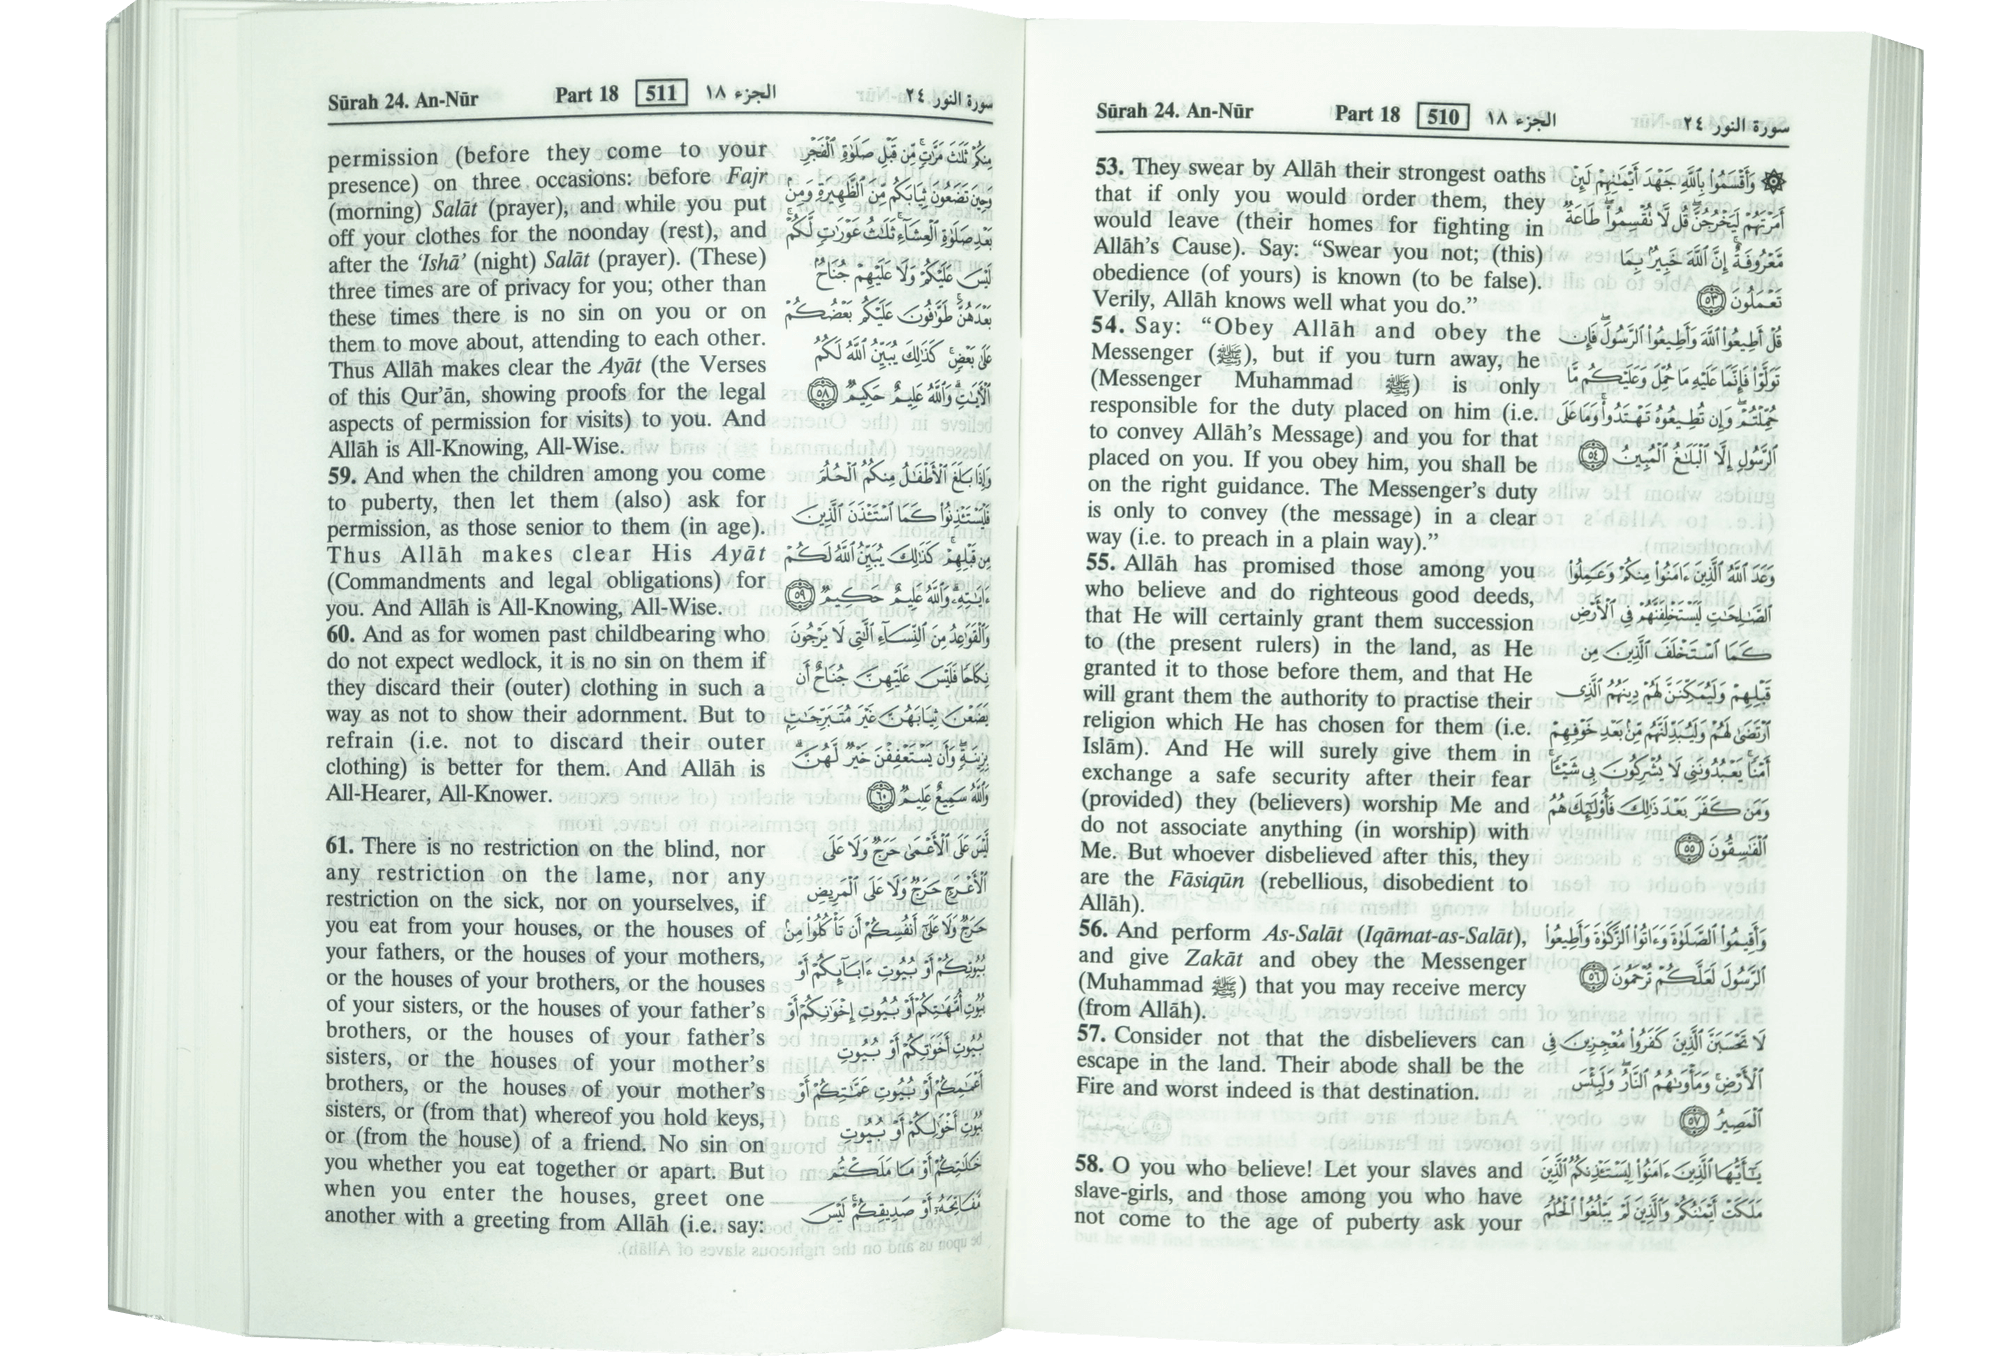 Sūrah 24. An-Nūr Part 18 510 الجزء ١٨ سورة النور ٢٤
53. They swear by Allāh their strongest oaths
that if only you would order them, they
would leave (their homes for fighting in
Allāh's Cause). Say: “Swear you not; (this)
obedience (of yours) is known (to be false).
Verily, Allāh knows well what you do.”
54. Say: “Obey Allāh and obey the
Messenger (ﷺ), but if you turn away, he
(Messenger Muhammad ﷺ) is only
responsible for the duty placed on him (i.e.
to convey Allāh's Message) and you for that
placed on you. If you obey him, you shall be
on the right guidance. The Messenger's duty
is only to convey (the message) in a clear
way (i.e. to preach in a plain way).”
55. Allāh has promised those among you
who believe and do righteous good deeds,
that He will certainly grant them succession
to (the present rulers) in the land, as He
granted it to those before them, and that He
will grant them the authority to practise their
religion which He has chosen for them (i.e.
Islām). And He will surely give them in
exchange a safe security after their fear
(provided) they (believers) worship Me and
do not associate anything (in worship) with
Me. But whoever disbelieved after this, they
are the Fāsiqūn (rebellious, disobedient to
Allāh).
56. And perform As-Salāt (Iqāmat-as-Salāt),
and give Zakāt and obey the Messenger
(Muhammad ﷺ) that you may receive mercy
(from Allāh).
57. Consider not that the disbelievers can
escape in the land. Their abode shall be the
Fire and worst indeed is that destination.
58. O you who believe! Let your slaves and
slave-girls, and those among you who have
not come to the age of puberty ask your
۞ وَأَقْسَمُوا۟ بِٱللَّهِ جَهْدَ أَيْمَٰنِهِمْ لَئِنْ
أَمَرْتَهُمْ لَيَخْرُجُنَّ ۖ قُل لَّا تُقْسِمُوا۟ ۖ طَاعَةٌ
مَّعْرُوفَةٌ ۚ إِنَّ ٱللَّهَ خَبِيرٌۢ بِمَا
تَعْمَلُونَ ٥٣
قُلْ أَطِيعُوا۟ ٱللَّهَ وَأَطِيعُوا۟ ٱلرَّسُولَ ۖ فَإِن
تَوَلَّوْا۟ فَإِنَّمَا عَلَيْهِ مَا حُمِّلَ وَعَلَيْكُم مَّا
حُمِّلْتُمْ ۖ وَإِن تُطِيعُوهُ تَهْتَدُوا۟ ۚ وَمَا عَلَى
ٱلرَّسُولِ إِلَّا ٱلْبَلَٰغُ ٱلْمُبِينُ ٥٤
وَعَدَ ٱللَّهُ ٱلَّذِينَ ءَامَنُوا۟ مِنكُمْ وَعَمِلُوا۟
ٱلصَّٰلِحَٰتِ لَيَسْتَخْلِفَنَّهُمْ فِى ٱلْأَرْضِ
كَمَا ٱسْتَخْلَفَ ٱلَّذِينَ مِن
قَبْلِهِمْ وَلَيُمَكِّنَنَّ لَهُمْ دِينَهُمُ ٱلَّذِى
ٱرْتَضَىٰ لَهُمْ وَلَيُبَدِّلَنَّهُم مِّنۢ بَعْدِ خَوْفِهِمْ
أَمْنًا ۚ يَعْبُدُونَنِى لَا يُشْرِكُونَ بِى شَيْـًٔا ۚ
وَمَن كَفَرَ بَعْدَ ذَٰلِكَ فَأُو۟لَٰٓئِكَ هُمُ
ٱلْفَٰسِقُونَ ٥٥
وَأَقِيمُوا۟ ٱلصَّلَوٰةَ وَءَاتُوا۟ ٱلزَّكَوٰةَ وَأَطِيعُوا۟
ٱلرَّسُولَ لَعَلَّكُمْ تُرْحَمُونَ ٥٦
لَا تَحْسَبَنَّ ٱلَّذِينَ كَفَرُوا۟ مُعْجِزِينَ فِى
ٱلْأَرْضِ ۚ وَمَأْوَىٰهُمُ ٱلنَّارُ ۖ وَلَبِئْسَ
ٱلْمَصِيرُ ٥٧
يَٰٓأَيُّهَا ٱلَّذِينَ ءَامَنُوا۟ لِيَسْتَـْٔذِنكُمُ ٱلَّذِينَ
مَلَكَتْ أَيْمَٰنُكُمْ وَٱلَّذِينَ لَمْ يَبْلُغُوا۟ ٱلْحُلُمَ
Sūrah 24. An-Nūr Part 18 511 الجزء ١٨ سورة النور ٢٤
permission (before they come to your
presence) on three occasions: before Fajr
(morning) Salāt (prayer), and while you put
off your clothes for the noonday (rest), and
after the ‘Ishā’ (night) Salāt (prayer). (These)
three times are of privacy for you; other than
these times there is no sin on you or on
them to move about, attending to each other.
Thus Allāh makes clear the Ayāt (the Verses
of this Qur’ān, showing proofs for the legal
aspects of permission for visits) to you. And
Allāh is All-Knowing, All-Wise.
59. And when the children among you come
to puberty, then let them (also) ask for
permission, as those senior to them (in age).
Thus Allāh makes clear His Ayāt
(Commandments and legal obligations) for
you. And Allāh is All-Knowing, All-Wise.
60. And as for women past childbearing who
do not expect wedlock, it is no sin on them if
they discard their (outer) clothing in such a
way as not to show their adornment. But to
refrain (i.e. not to discard their outer
clothing) is better for them. And Allāh is
All-Hearer, All-Knower.
61. There is no restriction on the blind, nor
any restriction on the lame, nor any
restriction on the sick, nor on yourselves, if
you eat from your houses, or the houses of
your fathers, or the houses of your mothers,
or the houses of your brothers, or the houses
of your sisters, or the houses of your father's
brothers, or the houses of your father's
sisters, or the houses of your mother's
brothers, or the houses of your mother's
sisters, or (from that) whereof you hold keys,
or (from the house) of a friend. No sin on
you whether you eat together or apart. But
when you enter the houses, greet one
another with a greeting from Allāh (i.e. say:
مِنكُمْ ثَلَٰثَ مَرَّٰتٍ ۚ مِّن قَبْلِ صَلَوٰةِ ٱلْفَجْرِ
وَحِينَ تَضَعُونَ ثِيَابَكُم مِّنَ ٱلظَّهِيرَةِ وَمِنۢ
بَعْدِ صَلَوٰةِ ٱلْعِشَآءِ ۚ ثَلَٰثُ عَوْرَٰتٍ لَّكُمْ ۚ
لَيْسَ عَلَيْكُمْ وَلَا عَلَيْهِمْ جُنَاحٌۢ
بَعْدَهُنَّ ۚ طَوَّٰفُونَ عَلَيْكُم بَعْضُكُمْ
عَلَىٰ بَعْضٍ ۚ كَذَٰلِكَ يُبَيِّنُ ٱللَّهُ لَكُمُ
ٱلْءَايَٰتِ ۗ وَٱللَّهُ عَلِيمٌ حَكِيمٌ ٥٨
وَإِذَا بَلَغَ ٱلْأَطْفَٰلُ مِنكُمُ ٱلْحُلُمَ
فَلْيَسْتَـْٔذِنُوا۟ كَمَا ٱسْتَـْٔذَنَ ٱلَّذِينَ
مِن قَبْلِهِمْ ۚ كَذَٰلِكَ يُبَيِّنُ ٱللَّهُ لَكُمْ
ءَايَٰتِهِۦ ۗ وَٱللَّهُ عَلِيمٌ حَكِيمٌ ٥٩
وَٱلْقَوَٰعِدُ مِنَ ٱلنِّسَآءِ ٱلَّٰتِى لَا يَرْجُونَ
نِكَاحًا فَلَيْسَ عَلَيْهِنَّ جُنَاحٌ أَن
يَضَعْنَ ثِيَابَهُنَّ غَيْرَ مُتَبَرِّجَٰتٍۭ
بِزِينَةٍ ۖ وَأَن يَسْتَعْفِفْنَ خَيْرٌ لَّهُنَّ ۗ
وَٱللَّهُ سَمِيعٌ عَلِيمٌ ٦٠
لَّيْسَ عَلَى ٱلْأَعْمَىٰ حَرَجٌ وَلَا عَلَى
ٱلْأَعْرَجِ حَرَجٌ وَلَا عَلَى ٱلْمَرِيضِ
حَرَجٌ وَلَا عَلَىٰٓ أَنفُسِكُمْ أَن تَأْكُلُوا۟ مِنۢ
بُيُوتِكُمْ أَوْ بُيُوتِ ءَابَآئِكُمْ أَوْ
بُيُوتِ أُمَّهَٰتِكُمْ أَوْ بُيُوتِ إِخْوَٰنِكُمْ أَوْ
بُيُوتِ أَخَوَٰتِكُمْ أَوْ بُيُوتِ
أَعْمَٰمِكُمْ أَوْ بُيُوتِ عَمَّٰتِكُمْ أَوْ
بُيُوتِ أَخْوَٰلِكُمْ أَوْ بُيُوتِ
خَٰلَٰتِكُمْ أَوْ مَا مَلَكْتُم
مَّفَاتِحَهُۥٓ أَوْ صَدِيقِكُمْ ۚ لَيْسَ